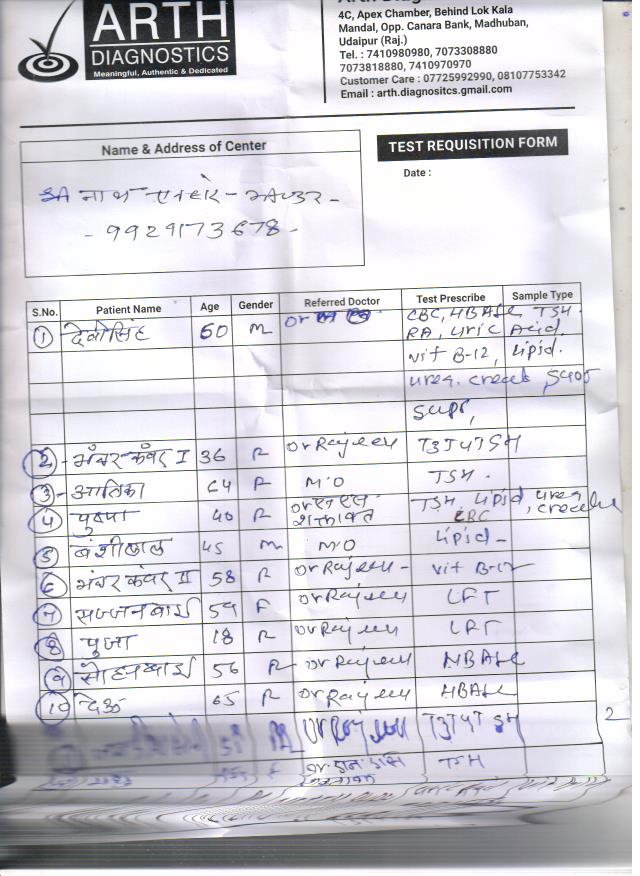 ARTH
DIAGNOSTICS
Meaningful, Authentic & Dedicated
4C, Apex Chamber, Behind Lok Kala
Mandal, Opp. Canara Bank, Madhuban,
Udaipur (Raj.)
Tel. : 7410980980, 7073308880
7073818880, 7410970970
Customer Care : 07725992990, 08107753342
Email : arth.diagnositcs.gmail.com
Name & Address of Center
TEST REQUISITION FORM
Date :
श्री नाथ
- 9929173678 -
S.No. Patient Name Age Gender Referred Doctor Test Prescribe Sample Type
1 देवीसिंह 60 m Dr CBC, HBA1c TSH.
RA, Uric Acid.
Vit B-12, Lipid.
urea. creat SGOT
SGPT,
2 - भंवर कंवर I 36 F Dr Rajeev T3T4TSH
3 - आतिका 64 F M/O TSH.
4 पुष्पा 40 F Dr एस एल TSH, Lipid, urea
शक्तावत CBC
5 बंशीलाल 45 m M/O Lipid -
6 भंवर कंवर II 58 F Dr Rajeev - Vit B-12
7 सज्जन बाई 54 F Dr Rajeev LFT
8 पूजा 18 F Dr Rajeev LFT
9 सोहन बाई 56 F Dr Rajeev HBA1c
10 देऊ 65 F Dr Rajeev HBA1c
Dr Rajeev T3T4TSH 2
F Dr TSH